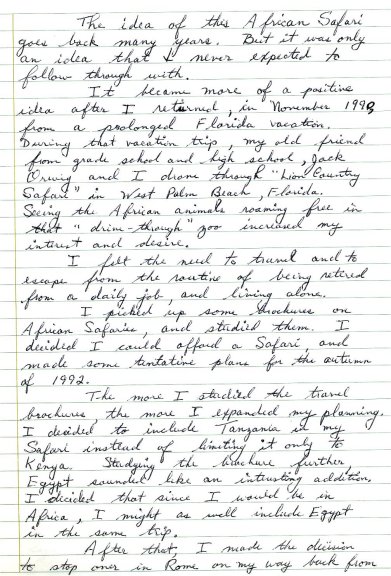 The idea of this African Safari
goes back many years. But it was only
an idea that I never expected to
follow through with.
It became more of a positive
idea after I returned, in November 1990,
from a prolonged Florida vacation.
During that vacation trip, my old friend
from grade school and high school, Jack
and I drove through "Lion Country
Safari" in West Palm Beach, Florida.
Seeing the African animals roaming free in
that "drive-through" zoo increased my
interest and desire.
I felt the need to travel and to
escape from the routine of being retired
from a daily job, and living alone.
I picked up some brochures on
African Safaris, and studied them. I
decided I could afford a Safari, and
made some tentative plans for the autumn
of 1992.
The more I studied the travel
brochures the more I expanded my planning.
I decided to include Tanzania in my
Safari instead of limiting it only to
Kenya. Studying the brochure further,
Egypt sounded like an intresting addition,
I decided that since I would be in
Africa, I might as well include Egypt
in the same trip.
After that, I made the decision
to stop over in Rome on my way back from